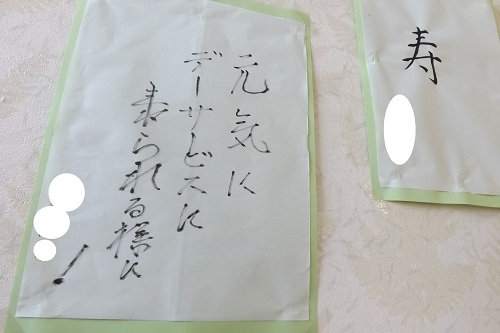 元気に
デーサビスに
来られる様に
！
寿